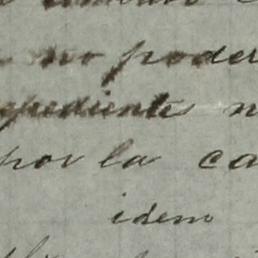 no poder
expediente n
por la ca
idem